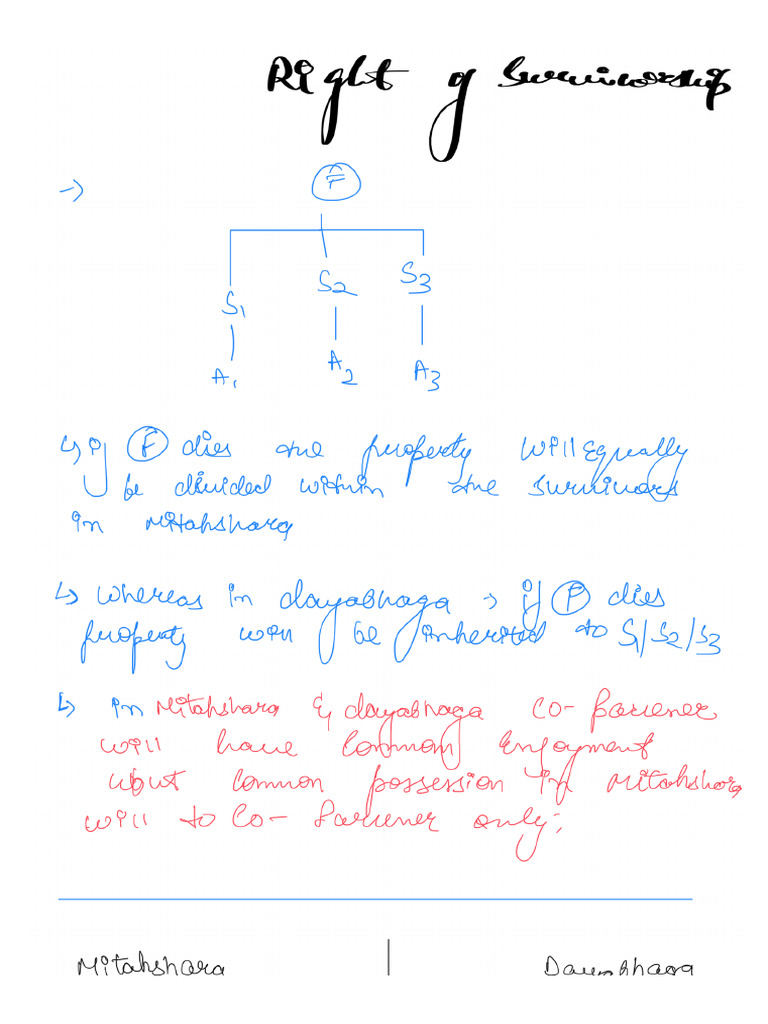 Right of Survivorship
→ F
S1 S2 S3
A1 A2 A3
↳ if F dies the property will Equally
be divided within the survivors
in Mitakshara
↳ whereas in dayabhaga → if F dies
property will be inherited to S1/S2/S3
↳ in Mitakshara & dayabhaga co-parcener
will have common Enjoyment
common possession in Mitakshara
will to co-parcener only;
Mitakshara | Dayabhaga